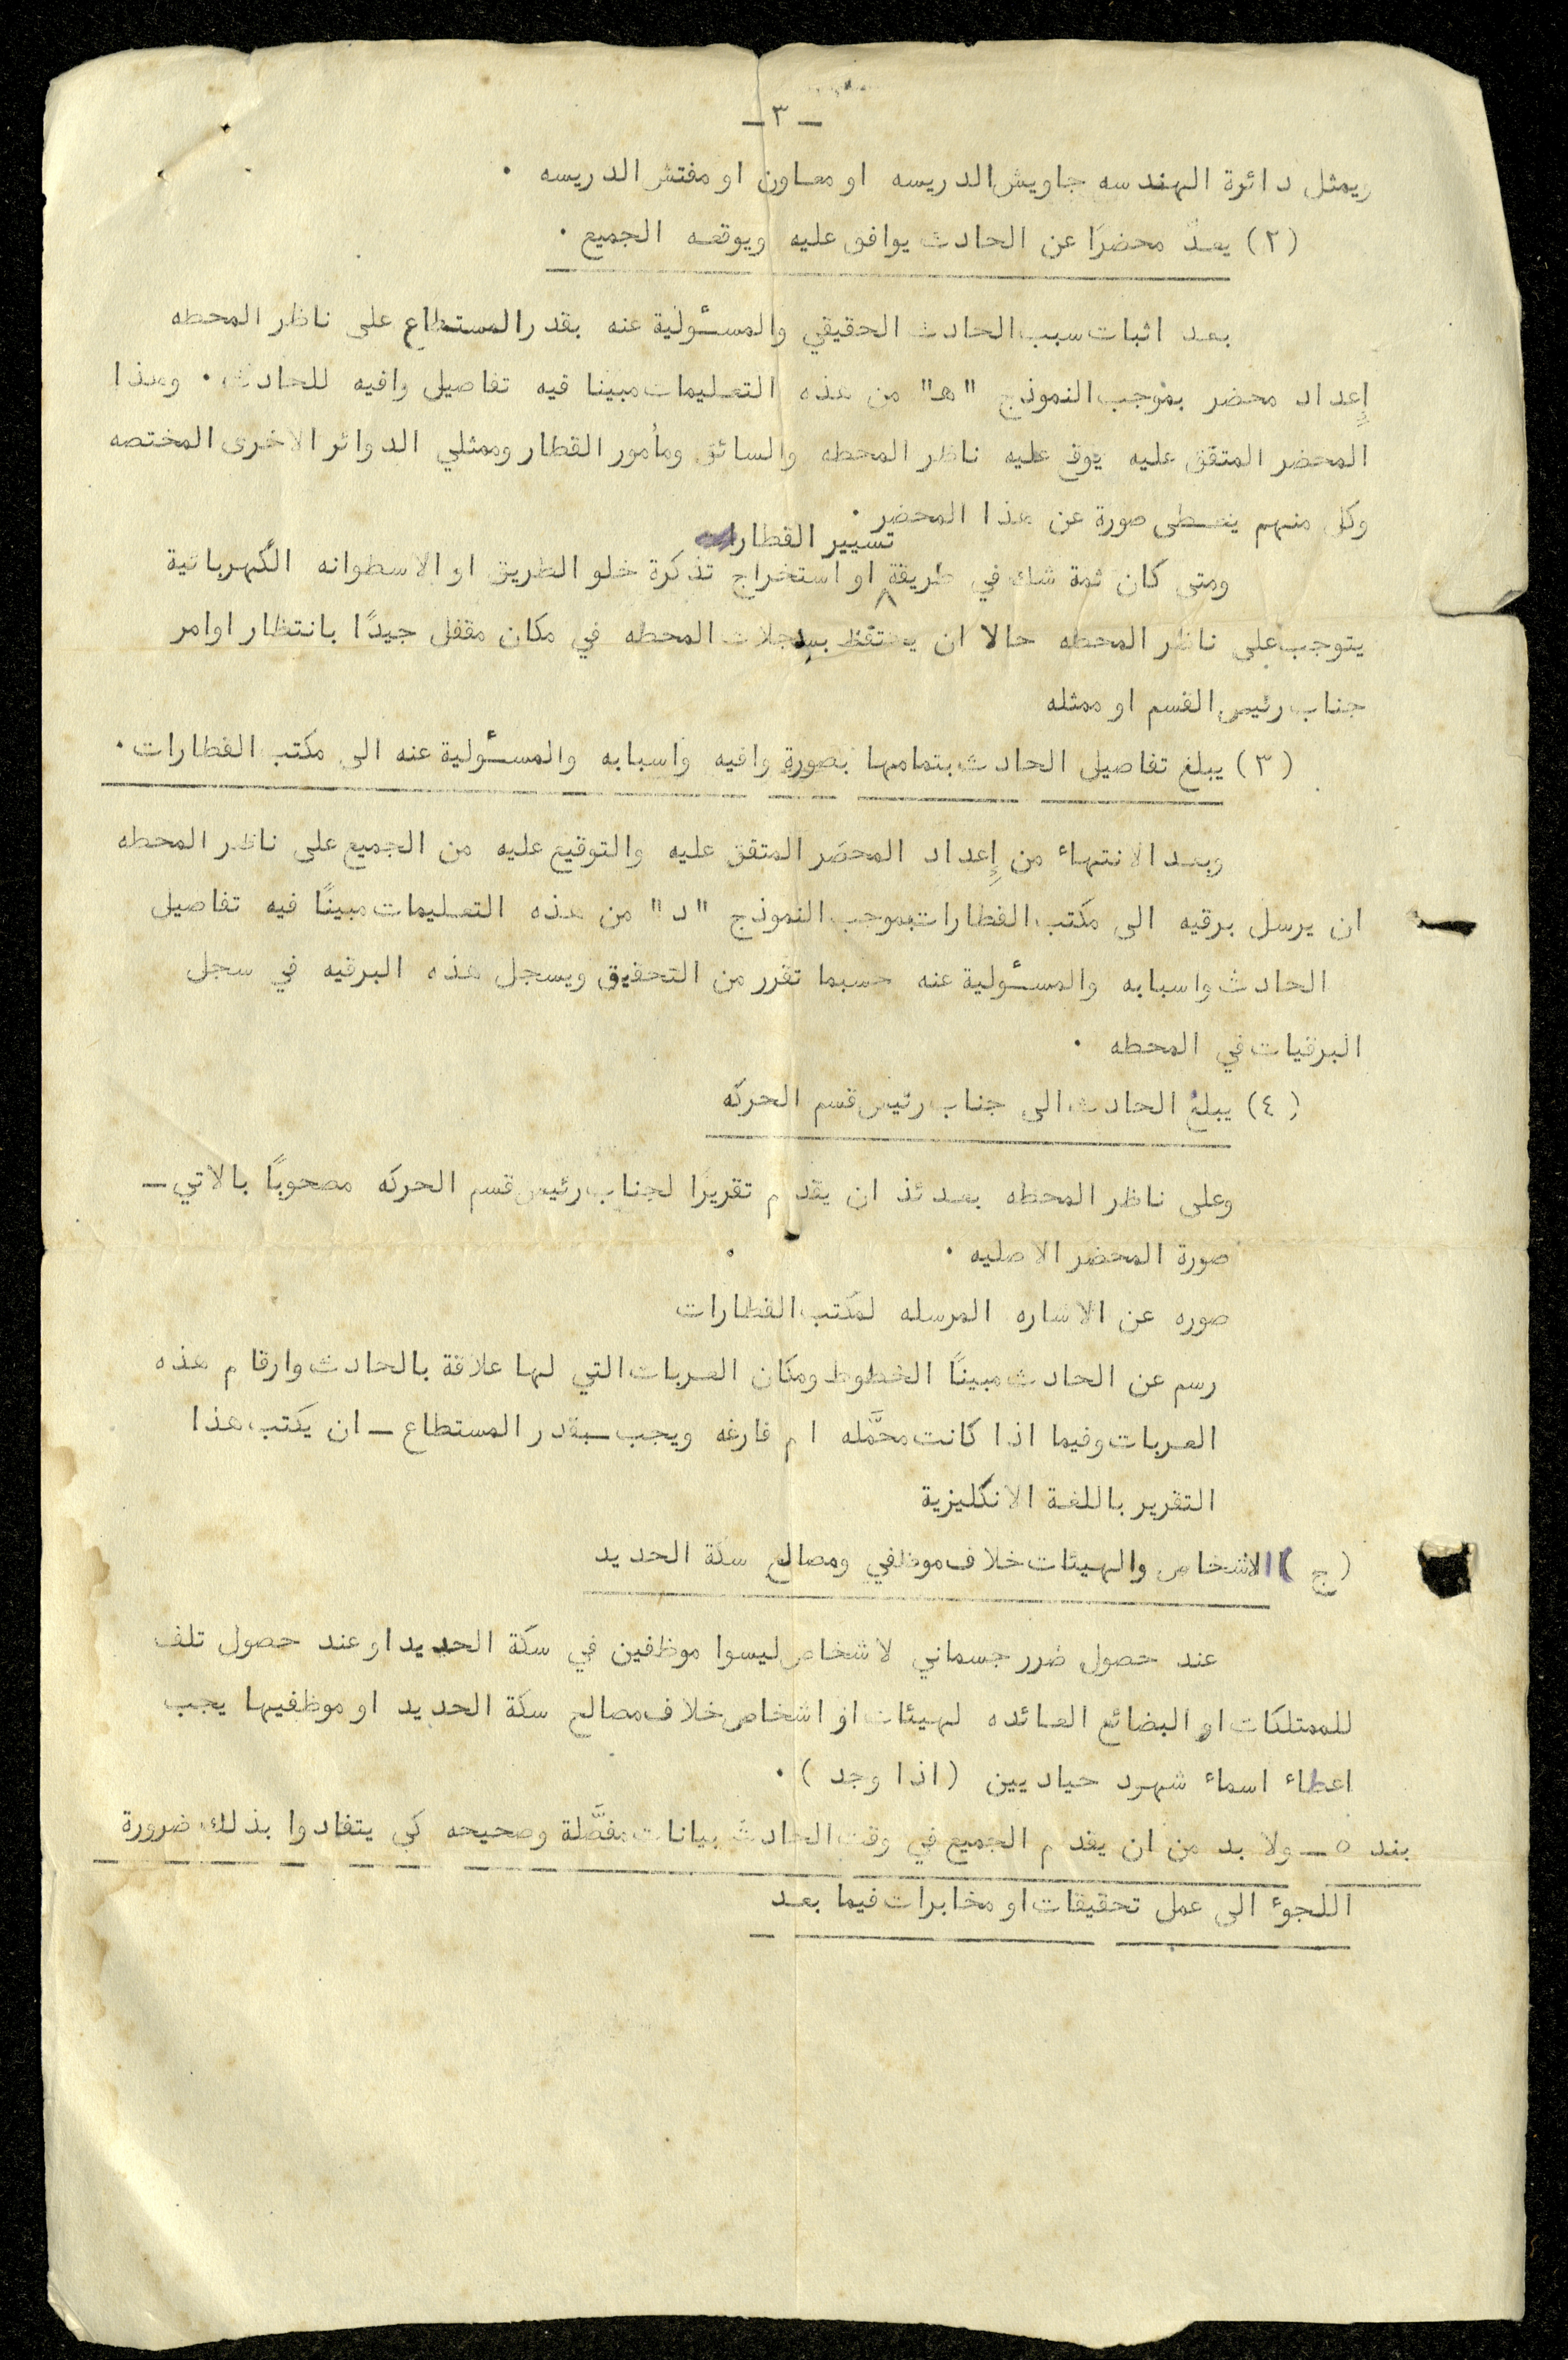 ـ ٣ ـ
ويمثل دائرة الهندسه جاويش الدريسه او معاون او مفتش الدريسه ٠
(٢) يعدّ محضرًا عن الحادث يوافق عليه ويوقعه الجميع ٠
بعد اثبات سبب الحادث الحقيقي والمسئولية عنه بقدر المستطاع على ناظر المحطه
إِعداد محضر بموجب النموذج "هـ" من هذه التعليمات مبينا فيه تفاصيل وافيه للحادث ٠ وهذا
المحضر المتفق عليه يوقع عليه ناظر المحطه والسائق ومأمور القطار وممثلي الدوائر الاخرى المختصه
وكل منهم يعطى صورة عن هذا المحضر ٠
تسيير القطارات
ومتى كان ثمة شك في طريقة او استخراج تذكرة خلو الطريق او الاسطوانه الكهربائية
يتوجب على ناظر المحطه حالا ان يحتفظ بسجلات المحطه في مكان مقفل جيدًا بانتظار اوامر
جناب رئيس القسم او ممثله
(٣) يبلغ تفاصيل الحادث بتمامها بصورة وافيه واسبابه والمسئولية عنه الى مكتب القطارات ٠
وبعد الانتهاء من إِعداد المحضر المتفق عليه والتوقيع عليه من الجميع على ناظر المحطه
ان يرسل برقيه الى مكتب القطارات بموجب النموذج "د" من هذه التعليمات مبينًا فيه تفاصيل
الحادث واسبابه والمسئولية عنه حسبما تقرر من التحقيق ويسجل هذه البرقيه في سجل
البرقيات في المحطه ٠
(٤) يبلغ الحادث الى جناب رئيس قسم الحركه
وعلى ناظر المحطه بعدئذ ان يقدم تقريرًا لجناب رئيس قسم الحركه مصحوبًا بالاتي ـ
صورة المحضر الاصليه ٠
صوره عن الاشاره المرسله لمكتب القطارات
رسم عن الحادث مبينًا الخطوط ومكان العربات التي لها علاقة بالحادث وارقام هذه
العربات وفيما اذا كانت محمَّله ام فارغه ويجب ـ بقدر المستطاع ـ ان يكتب هذا
التقرير باللغة الانكليزية
(ج) الاشخاص والهيئات خلاف موظفي ومصالح سكة الحديد
عند حصول ضرر جسماني لاشخاص ليسوا موظفين في سكة الحديد او عند حصول تلف
للممتلكات او البضائع العائده لهيئات او اشخاص خلاف مصالح سكة الحديد او موظفيها يجب
اعطاء اسماء شهود حياديين (اذا وجد) ٠
بند ٥ ـ ولا بد من ان يقدم الجميع في وقت الحادث بيانات مفصَّلة وصحيحه كي يتفادوا بذلك ضرورة
اللجوء الى عمل تحقيقات او مخابرات فيما بعد